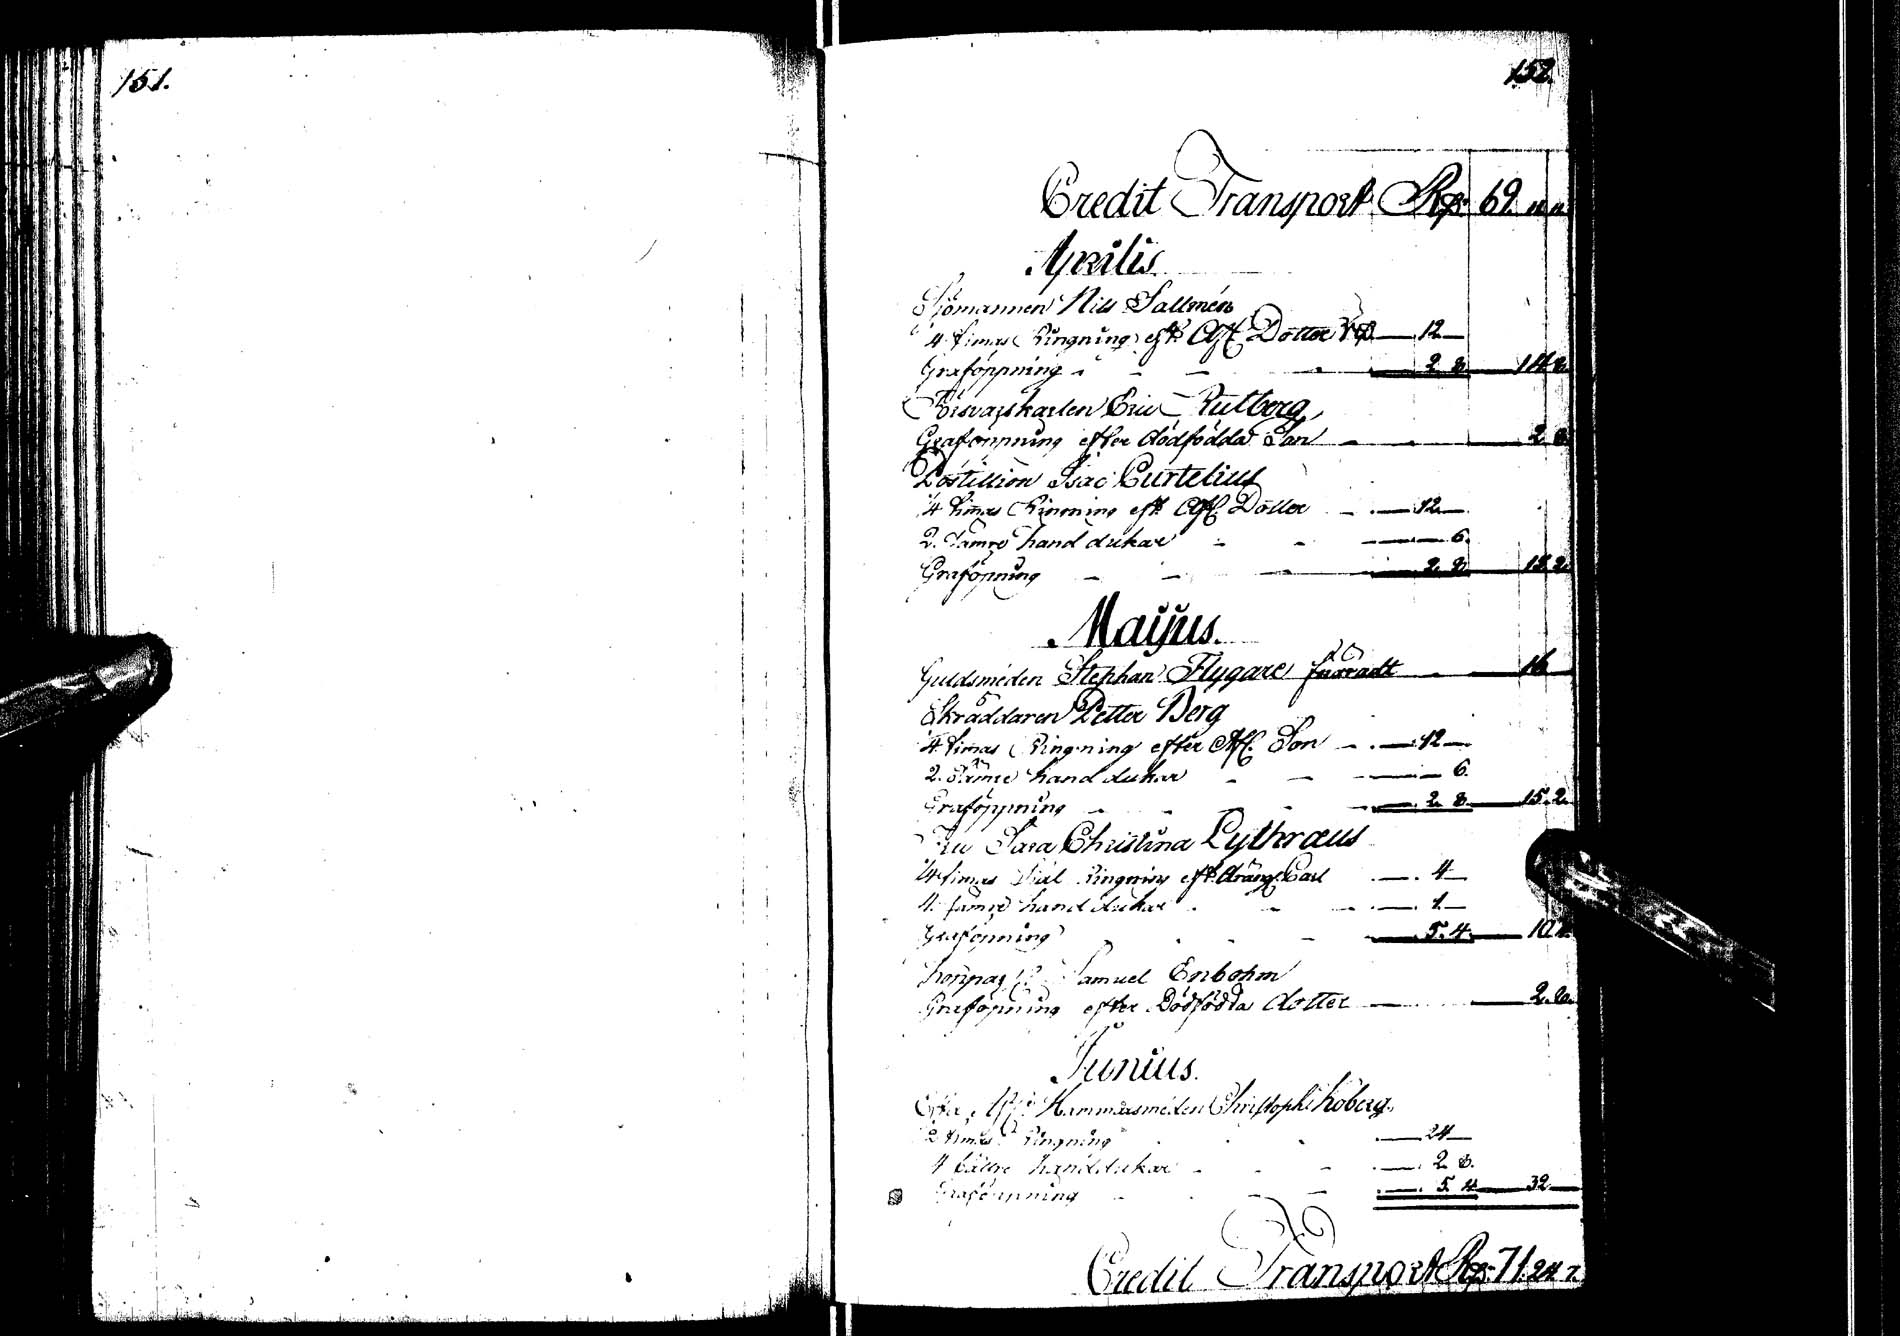 151.
152.
Credit Transport Rd: 69.
Aprilis.
Sjömannen Nils Sallmén
1/4 timas Ringning eft. Afl. Dotter 12
Graföppning 2. 8. 14. 8.
Försvarskarlen Eric Rutberg
Graföppning efter dödfödda Son 2. 8.
Postillion Isac Curtelius
1/4 timas Ringning eft. Afl. Dotter 12
2. Sämre handdukar 6.
Graföpning 2. 8. 15. 2.
Maijus.
Guldsmeden Stephan Flygare 16
Skräddaren Petter Berg
1/4 timas Ringning efter Afl. Son 12
2. Sämre handdukar 6.
Graföppning 2. 8. 15. 2.
Fru Sara Christina Lythræus
1/4 timas Ringning eft. dräng. Carl 4
4. sämre handdukar 1
Graföpning 5. 4. 10. 4.
Samuel Enbohm
Graföpning efter Dödfödda dotter 2. 8.
Junius.
Efter Afl. Hammarsmeden Christoph: Koberg.
1/2 timas Ringning 24
4 bättre handdukar 2. 8.
Graföppning 5. 4 32
Credit Transport Rd: 71. 24. 7.